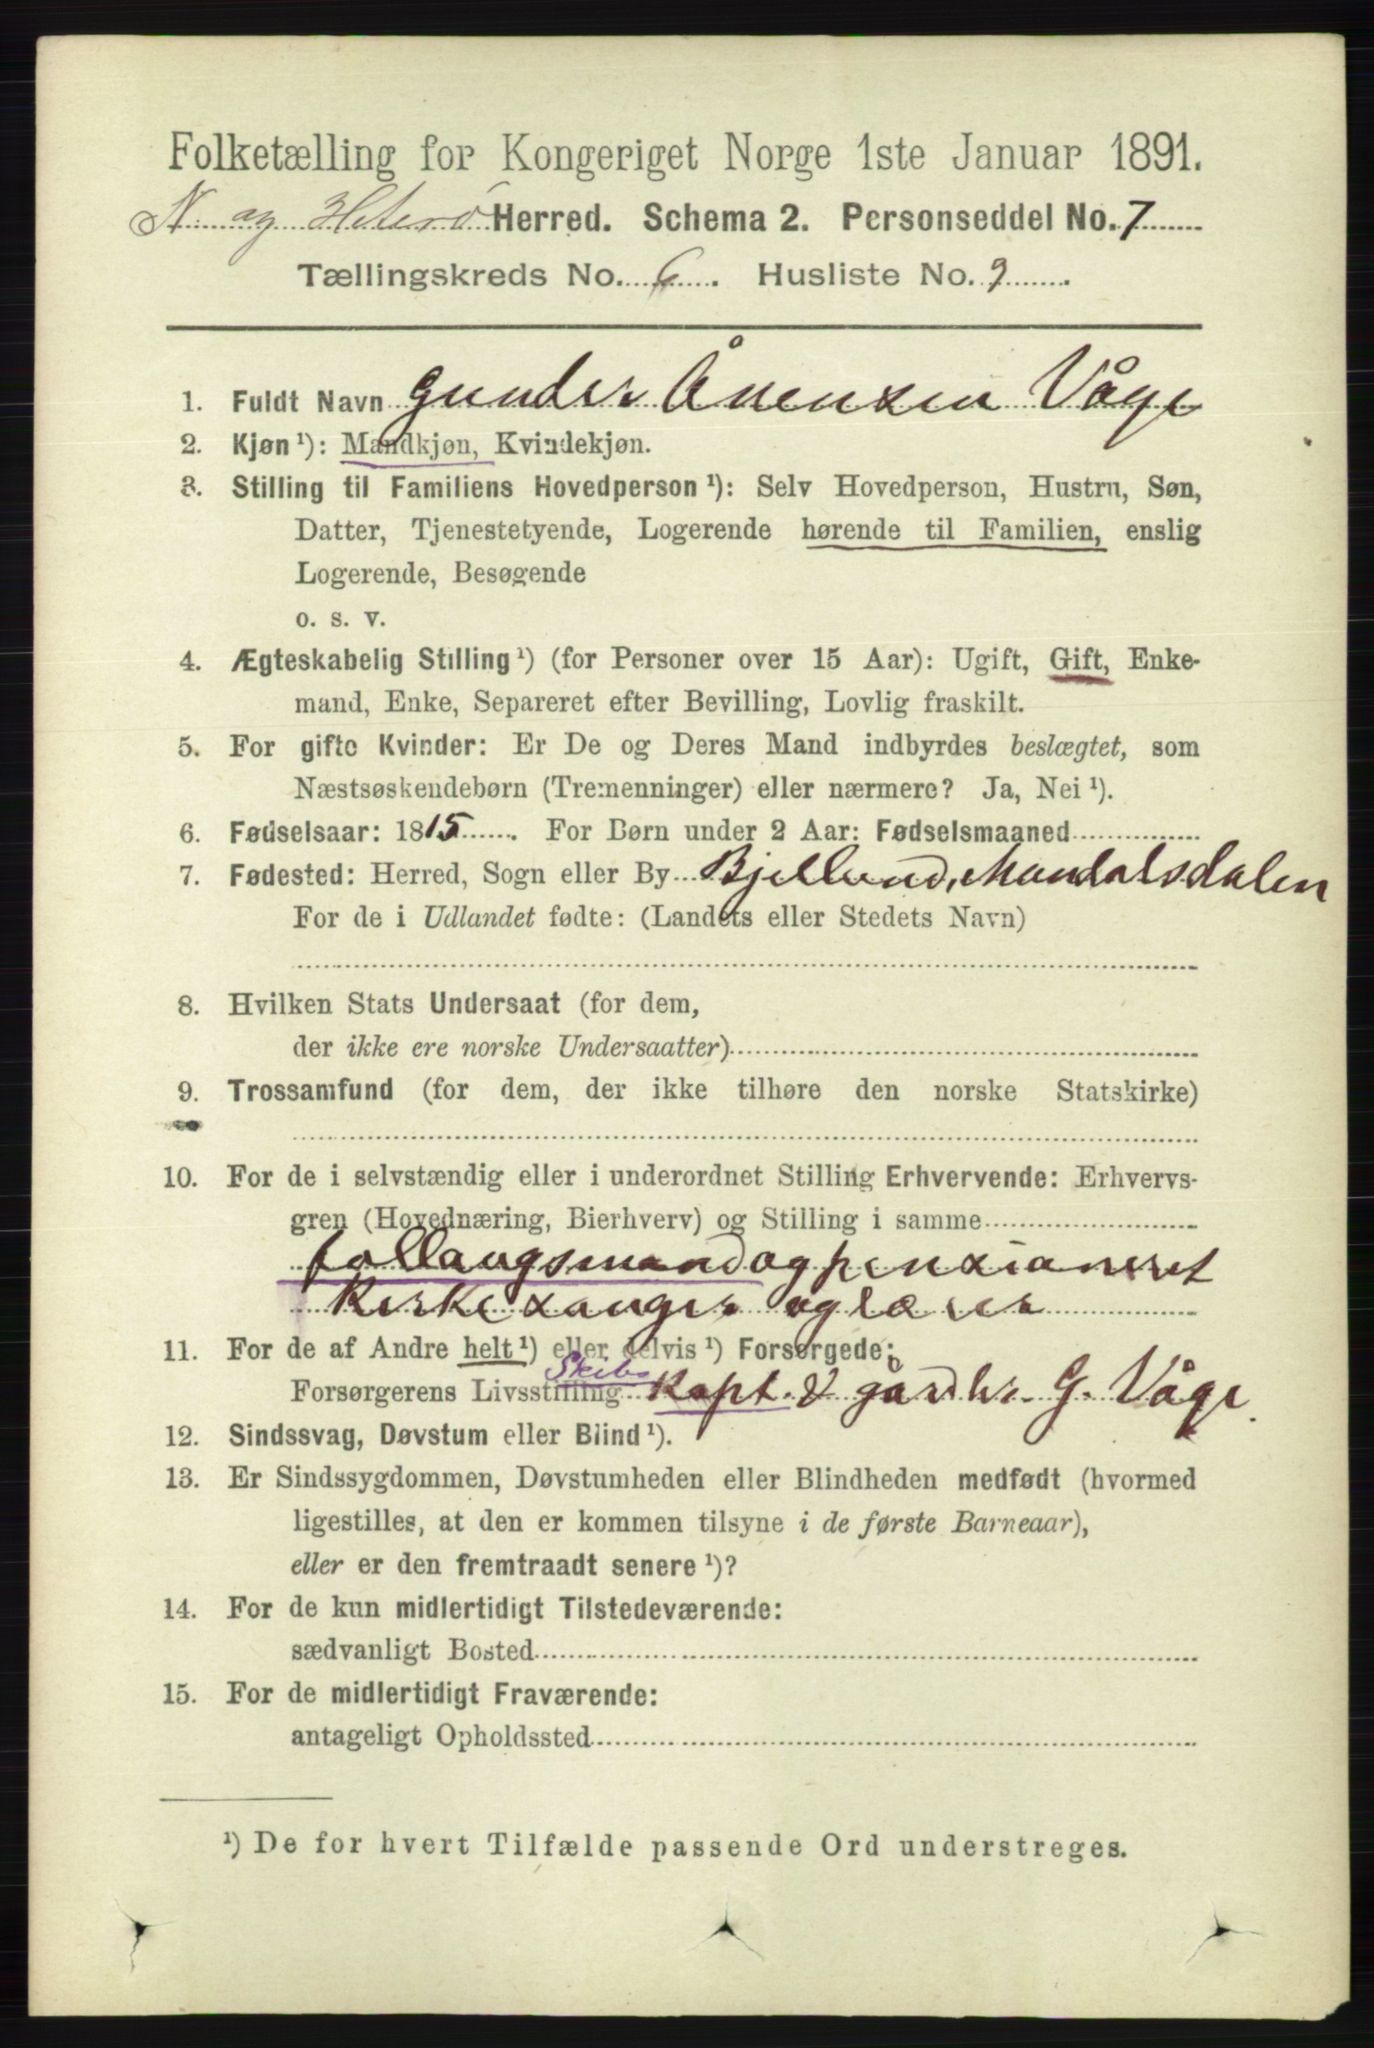 Folketælling for Kongeriget Norge 1ste Januar 1891.
N. og Hiterø Herred. Schema 2. Personseddel No. 7
Tællingskreds No. 6. Husliste No. 9.
1. Fuldt Navn Gunder Ånensen Våge
2. Kjøn ¹): Mandkjøn, Kvindekjøn.
3. Stilling til Familiens Hovedperson ¹): Selv Hovedperson, Hustru, Søn,
Datter, Tjenestetyende, Logerende hørende til Familien, enslig
Logerende, Besøgende
o. s. v.
4. Ægteskabelig Stilling ¹) (for Personer over 15 Aar): Ugift, Gift, Enke-
mand, Enke, Separeret efter Bevilling, Lovlig fraskilt.
5. For gifte Kvinder: Er De og Deres Mand indbyrdes beslægtet, som
Næstsøskendebørn (Tremenninger) eller nærmere? Ja, Nei ¹).
6. Fødselsaar: 1815. For Børn under 2 Aar: Fødselsmaaned
7. Fødested: Herred, Sogn eller By Bjellund, Mandalsdalen
For de i Udlandet fødte: (Landets eller Stedets Navn)
8. Hvilken Stats Undersaat (for dem,
der ikke ere norske Undersaatter)
9. Trossamfund (for dem, der ikke tilhøre den norske Statskirke)
10. For de i selvstændig eller i underordnet Stilling Erhvervende: Erhvervs-
gren (Hovednæring, Bierhverv) og Stilling i samme
follaugsmand og penxioneret
Kirkexanger og lærer
11. For de af Andre helt ¹) eller delvis ¹) Forsørgede:
Skibs
Forsørgerens Livsstilling Kapt. & gårdbr. G. Våge.
12. Sindssvag, Døvstum eller Blind ¹).
13. Er Sindssygdommen, Døvstumheden eller Blindheden medfødt (hvormed
ligestilles, at den er kommen tilsyne i de første Barneaar),
eller er den fremtraadt senere ¹)?
14. For de kun midlertidigt Tilstedeværende:
sædvanligt Bosted
15. For de midlertidigt Fraværende:
antageligt Opholdssted
¹) De for hvert Tilfælde passende Ord understreges.